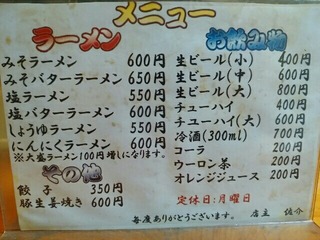 メニュー
ラーメン
みそラーメン 600円
みそバターラーメン 650円
塩ラーメン 550円
塩バターラーメン 600円
しょうゆラーメン 550円
にんにくラーメン 600円
※大盛ラーメン100円増しになります。
その他
餃子 350円
豚生姜焼き 600円
お飲み物
生ビール(小) 400円
生ビール(中) 600円
生ビール(大) 800円
チューハイ 400円
チューハイ(大) 600円
冷酒(300ml) 700円
コーラ 200円
ウーロン茶 200円
オレンジジュース 200円
定休日:月曜日
毎度ありがとうございます。 店主